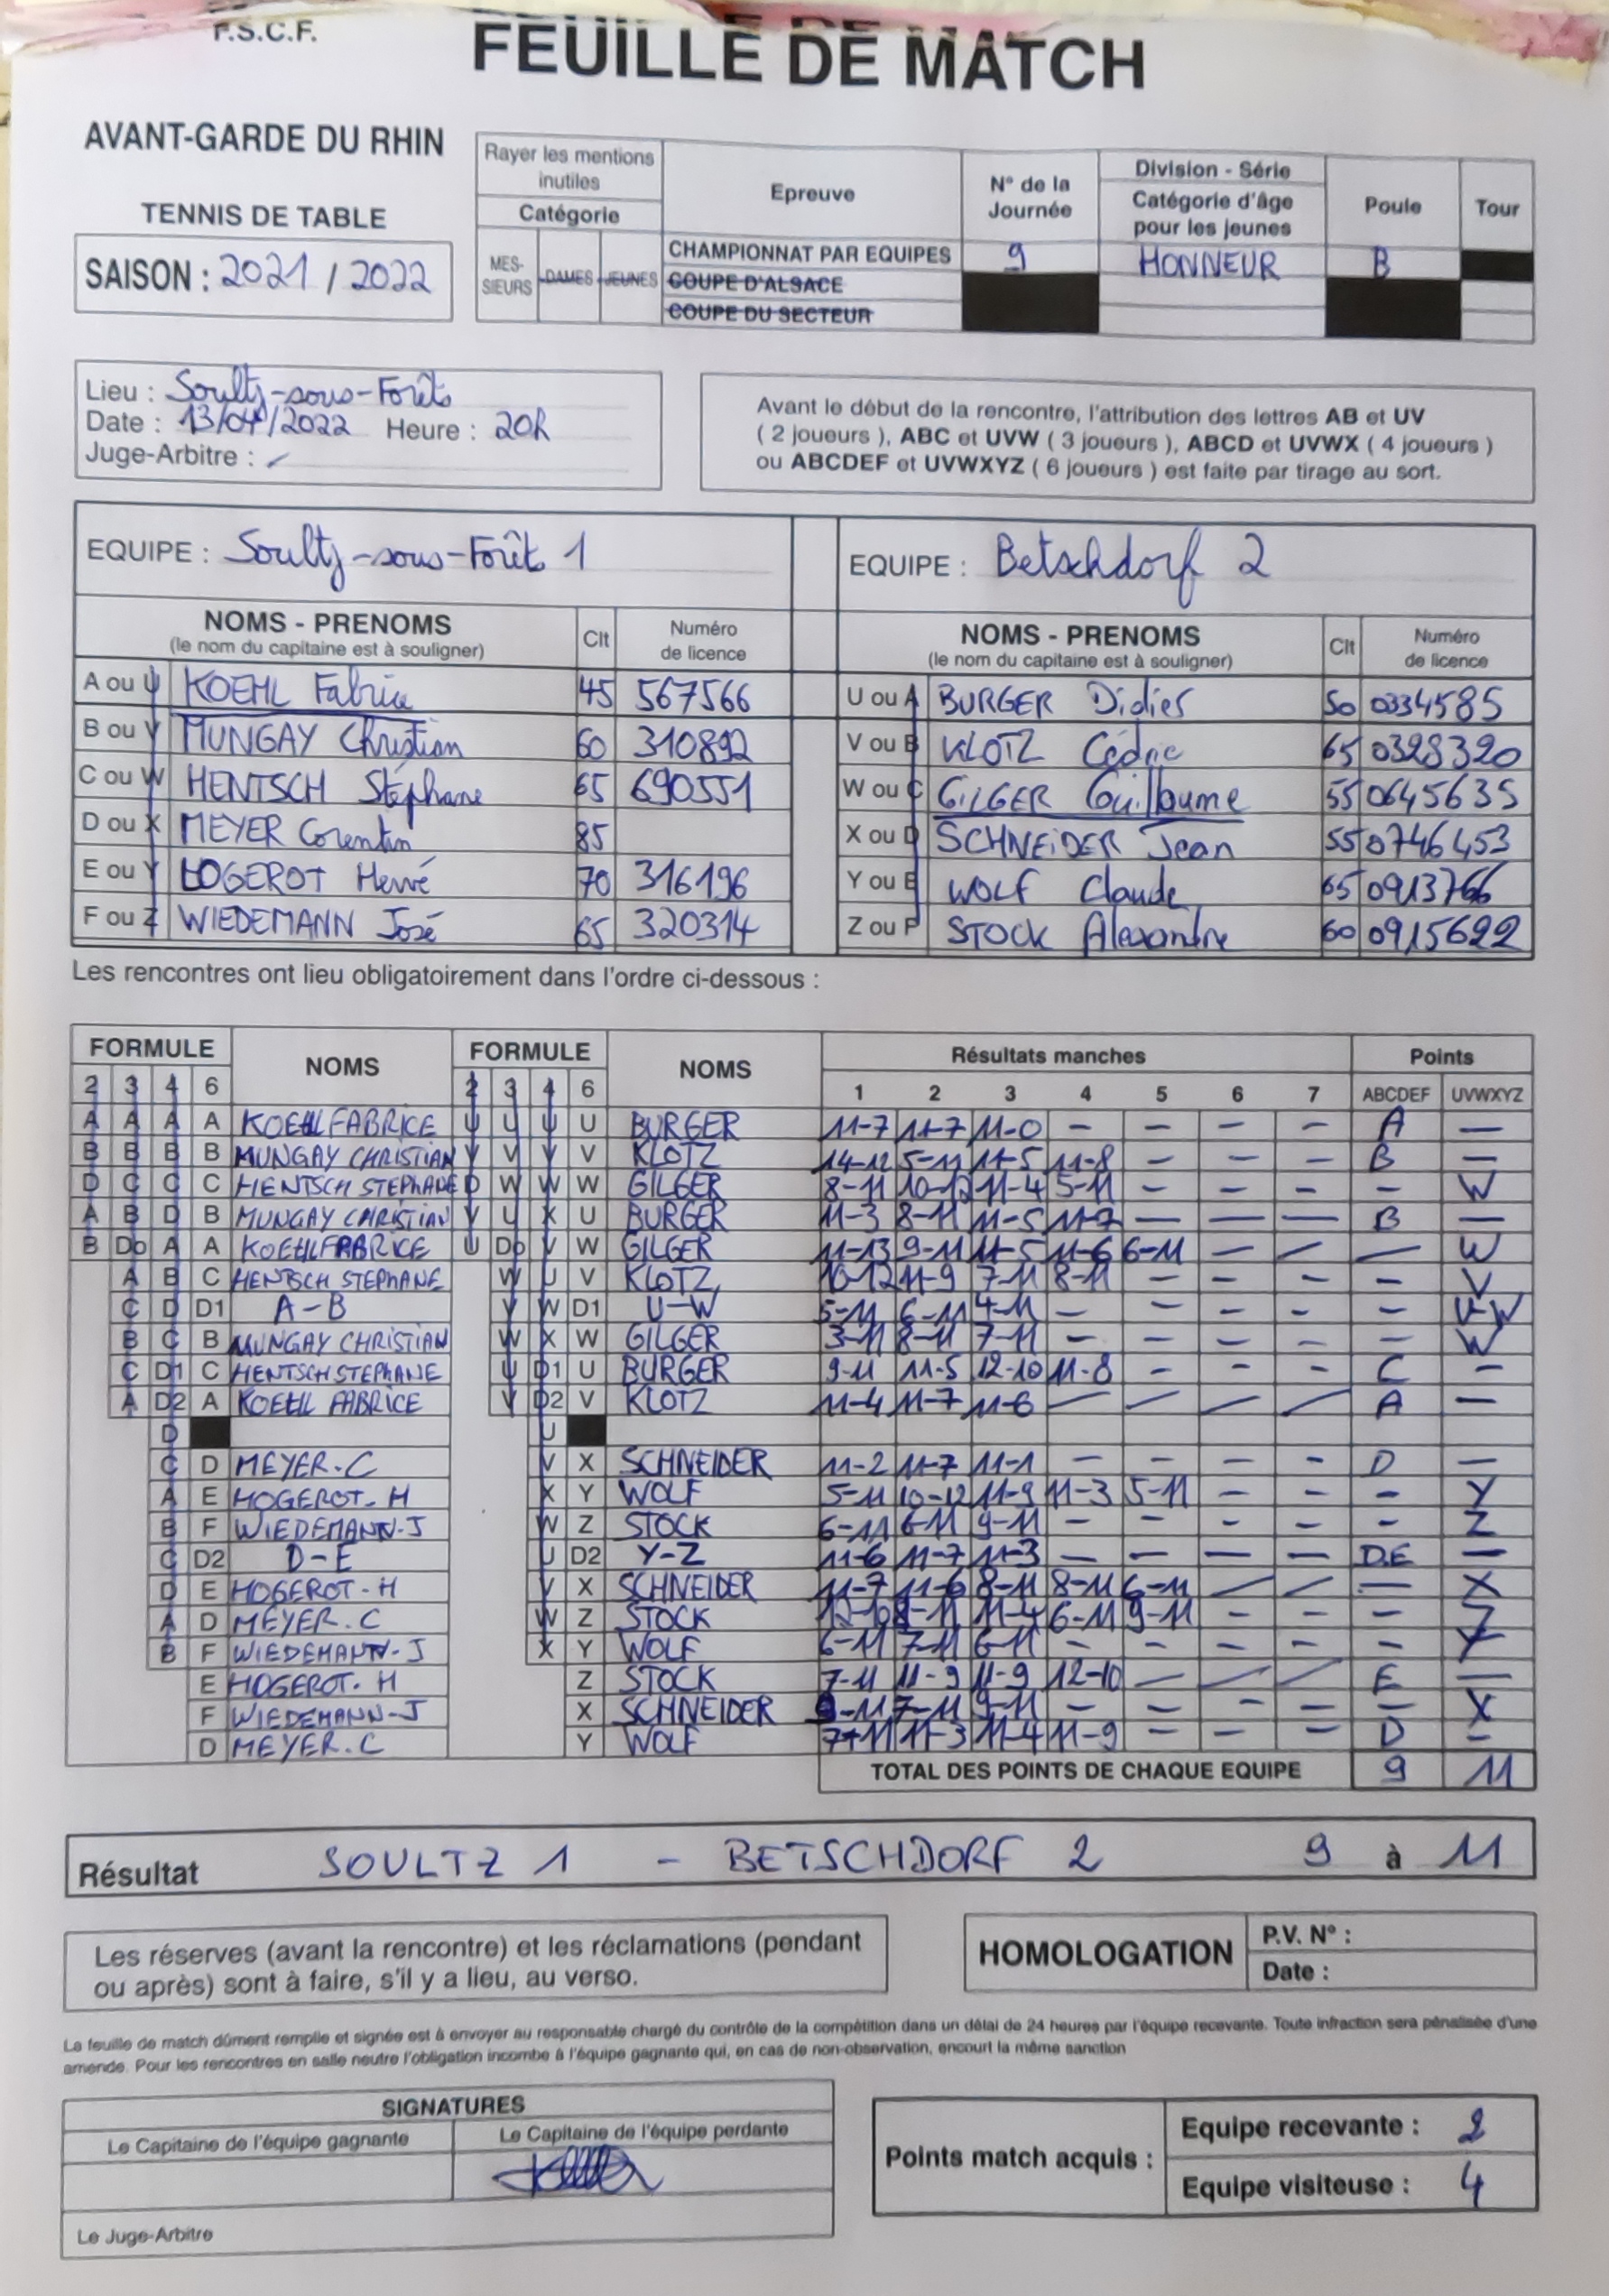 F.S.C.F.
FEUILLE DE MATCH
AVANT-GARDE DU RHIN
TENNIS DE TABLE
SAISON : 2021 / 2022
Rayer les mentions inutiles
Catégorie
MES-SIEURS DAMES JEUNES
Epreuve
N° de la Journée
Division - Série
Catégorie d'âge pour les jeunes
Poule
Tour
CHAMPIONNAT PAR EQUIPES 9 HONNEUR B
COUPE D'ALSACE
COUPE DU SECTEUR
Lieu : Soultz-sous-Forêts
Date : 13/04/2022 Heure : 20h
Juge-Arbitre :
Avant le début de la rencontre, l'attribution des lettres AB et UV
( 2 joueurs ), ABC et UVW ( 3 joueurs ), ABCD et UVWX ( 4 joueurs )
ou ABCDEF et UVWXYZ ( 6 joueurs ) est faite par tirage au sort.
EQUIPE : Soultz-sous-Forêt 1
NOMS - PRENOMS Clt Numéro
(le nom du capitaine est à souligner) de licence
A ou U KOEHL Fabrice 45 567566
B ou V MUNGAY Christian 60 310892
C ou W HENTSCH Stéphane 65 690551
D ou X MEYER Corentin 85
E ou Y HOGEROT Hervé 70 316196
F ou Z WIEDEMANN José 65 320314
EQUIPE : Betschdorf 2
NOMS - PRENOMS Clt Numéro
(le nom du capitaine est à souligner) de licence
U ou A BURGER Didier 50 0334585
V ou B KLOTZ Cédric 65 0328320
W ou C GILGER Guillaume 55 0645635
X ou D SCHNEIDER Jean 55 0746453
Y ou E WOLF Claude 65 0913766
Z ou F STOCK Alexandre 60 0915622
Les rencontres ont lieu obligatoirement dans l'ordre ci-dessous :
FORMULE NOMS FORMULE NOMS Résultats manches Points
2 3 4 6 2 3 4 6 1 2 3 4 5 6 7 ABCDEF UVWXYZ
A A A A KOEHL FABRICE U U U U BURGER 11-7 11-7 11-0 - - - - A -
B B B B MUNGAY CHRISTIAN V V V V KLOTZ 14-12 5-11 11-5 11-8 - - - B -
D C C C HENTSCH STEPHANE D W W W GILGER 8-11 10-12 11-4 5-11 - - - - W
A B D B MUNGAY CHRISTIAN V U X U BURGER 11-3 8-11 11-5 11-7 - - - B -
B Do A A KOEHL FABRICE U Do V W GILGER 11-13 9-11 11-5 11-6 6-11 - - - W
A B C HENTSCH STEPHANE W U V KLOTZ 10-12 11-9 7-11 8-11 - - - - V
C D D1 A-B V W D1 U-W 5-11 6-11 4-11 - - - - - U-W
B C B MUNGAY CHRISTIAN W X W GILGER 3-11 8-11 7-11 - - - - - W
C D1 C HENTSCH STEPHANE U D1 U BURGER 9-11 11-5 12-10 11-8 - - - C -
A D2 A KOEHL FABRICE V D2 V KLOTZ 11-4 11-7 11-6 - - - - A -
D U
C D MEYER.C V X SCHNEIDER 11-2 11-7 11-1 - - - - D -
A E HOGEROT-H X Y WOLF 5-11 10-12 11-9 11-3 5-11 - - - Y
B F WIEDEMANN-J W Z STOCK 6-11 6-11 9-11 - - - - - Z
C D2 D-E U D2 Y-Z 11-6 11-7 11-3 - - - - D.E -
D E HOGEROT-H V X SCHNEIDER 11-7 11-6 8-11 8-11 6-11 - - - X
A D MEYER.C W Z STOCK 12-10 8-11 11-4 6-11 9-11 - - - Z
B F WIEDEMANN-J X Y WOLF 6-11 7-11 6-11 - - - - - Y
E HOGEROT.H Z STOCK 7-11 11-9 11-9 12-10 - - - E -
F WIEDEMANN-J X SCHNEIDER 9-11 7-11 9-11 - - - - - X
D MEYER.C Y WOLF 7-11 11-3 11-4 11-9 - - - D -
TOTAL DES POINTS DE CHAQUE EQUIPE 9 11
Résultat SOULTZ 1 - BETSCHDORF 2 9 à 11
Les réserves (avant la rencontre) et les réclamations (pendant
ou après) sont à faire, s'il y a lieu, au verso.
HOMOLOGATION
P.V. N° :
Date :
La feuille de match dûment remplie et signée est à envoyer au responsable chargé du contrôle de la compétition dans un délai de 24 heures par l'équipe recevante. Toute infraction sera pénalisée d'une
amende. Pour les rencontres en salle neutre l'obligation incombe à l'équipe gagnante qui, en cas de non-observation, encourt la même sanction
SIGNATURES
Le Capitaine de l'équipe gagnante Le Capitaine de l'équipe perdante
Le Juge-Arbitre
Points match acquis :
Equipe recevante : 2
Equipe visiteuse : 4